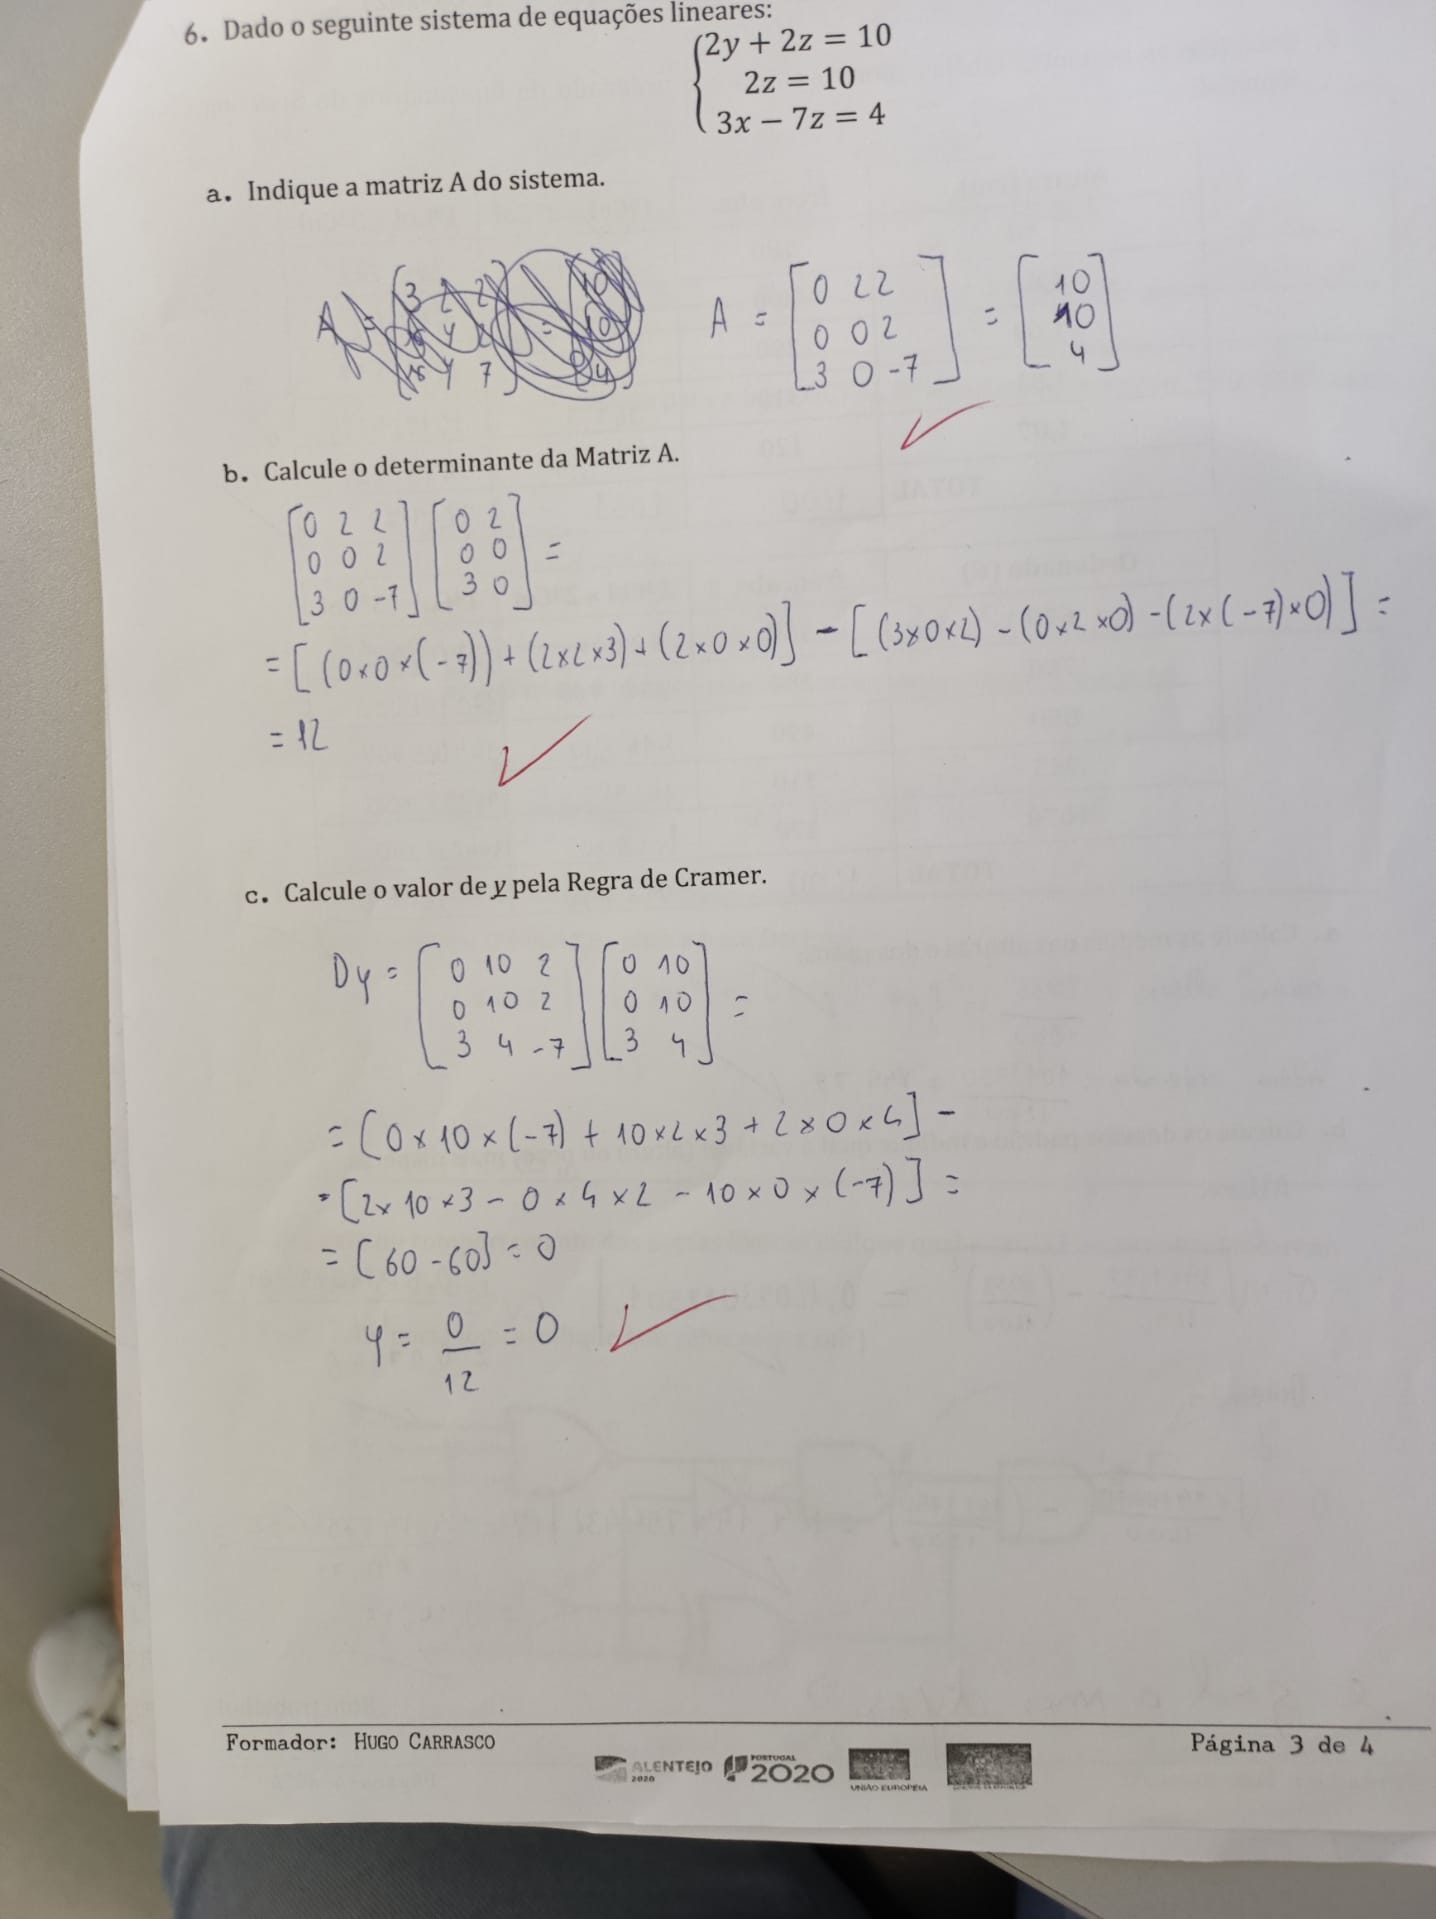 6. Dado o seguinte sistema de equações lineares:
2y + 2z = 10
2z = 10
3x − 7z = 4
a. Indique a matriz A do sistema.
A = [0 2 2] = [10]
[0 0 2] [10]
[3 0 -7] [4]
b. Calcule o determinante da Matriz A.
[0 2 2] [0 2]
[0 0 2] [0 0] =
[3 0 -7] [3 0]
= [(0×0×(-7)) + (2×2×3) + (2×0×0)] - [(3×0×2) - (0×2×0) - (2×(-7)×0)] =
= 12
c. Calcule o valor de y pela Regra de Cramer.
Dy = [0 10 2] [0 10]
[0 10 2] [0 10] =
[3 4 -7] [3 4]
= [0×10×(-7) + 10×2×3 + 2×0×4] -
- [2×10×3 - 0×4×2 - 10×0×(-7)] =
= [60-60] = 0
y = 0/12 = 0
Formador: HUGO CARRASCO
Página 3 de 4
ALENTEJO 2020
PORTUGAL 2020
UNIÃO EUROPEIA